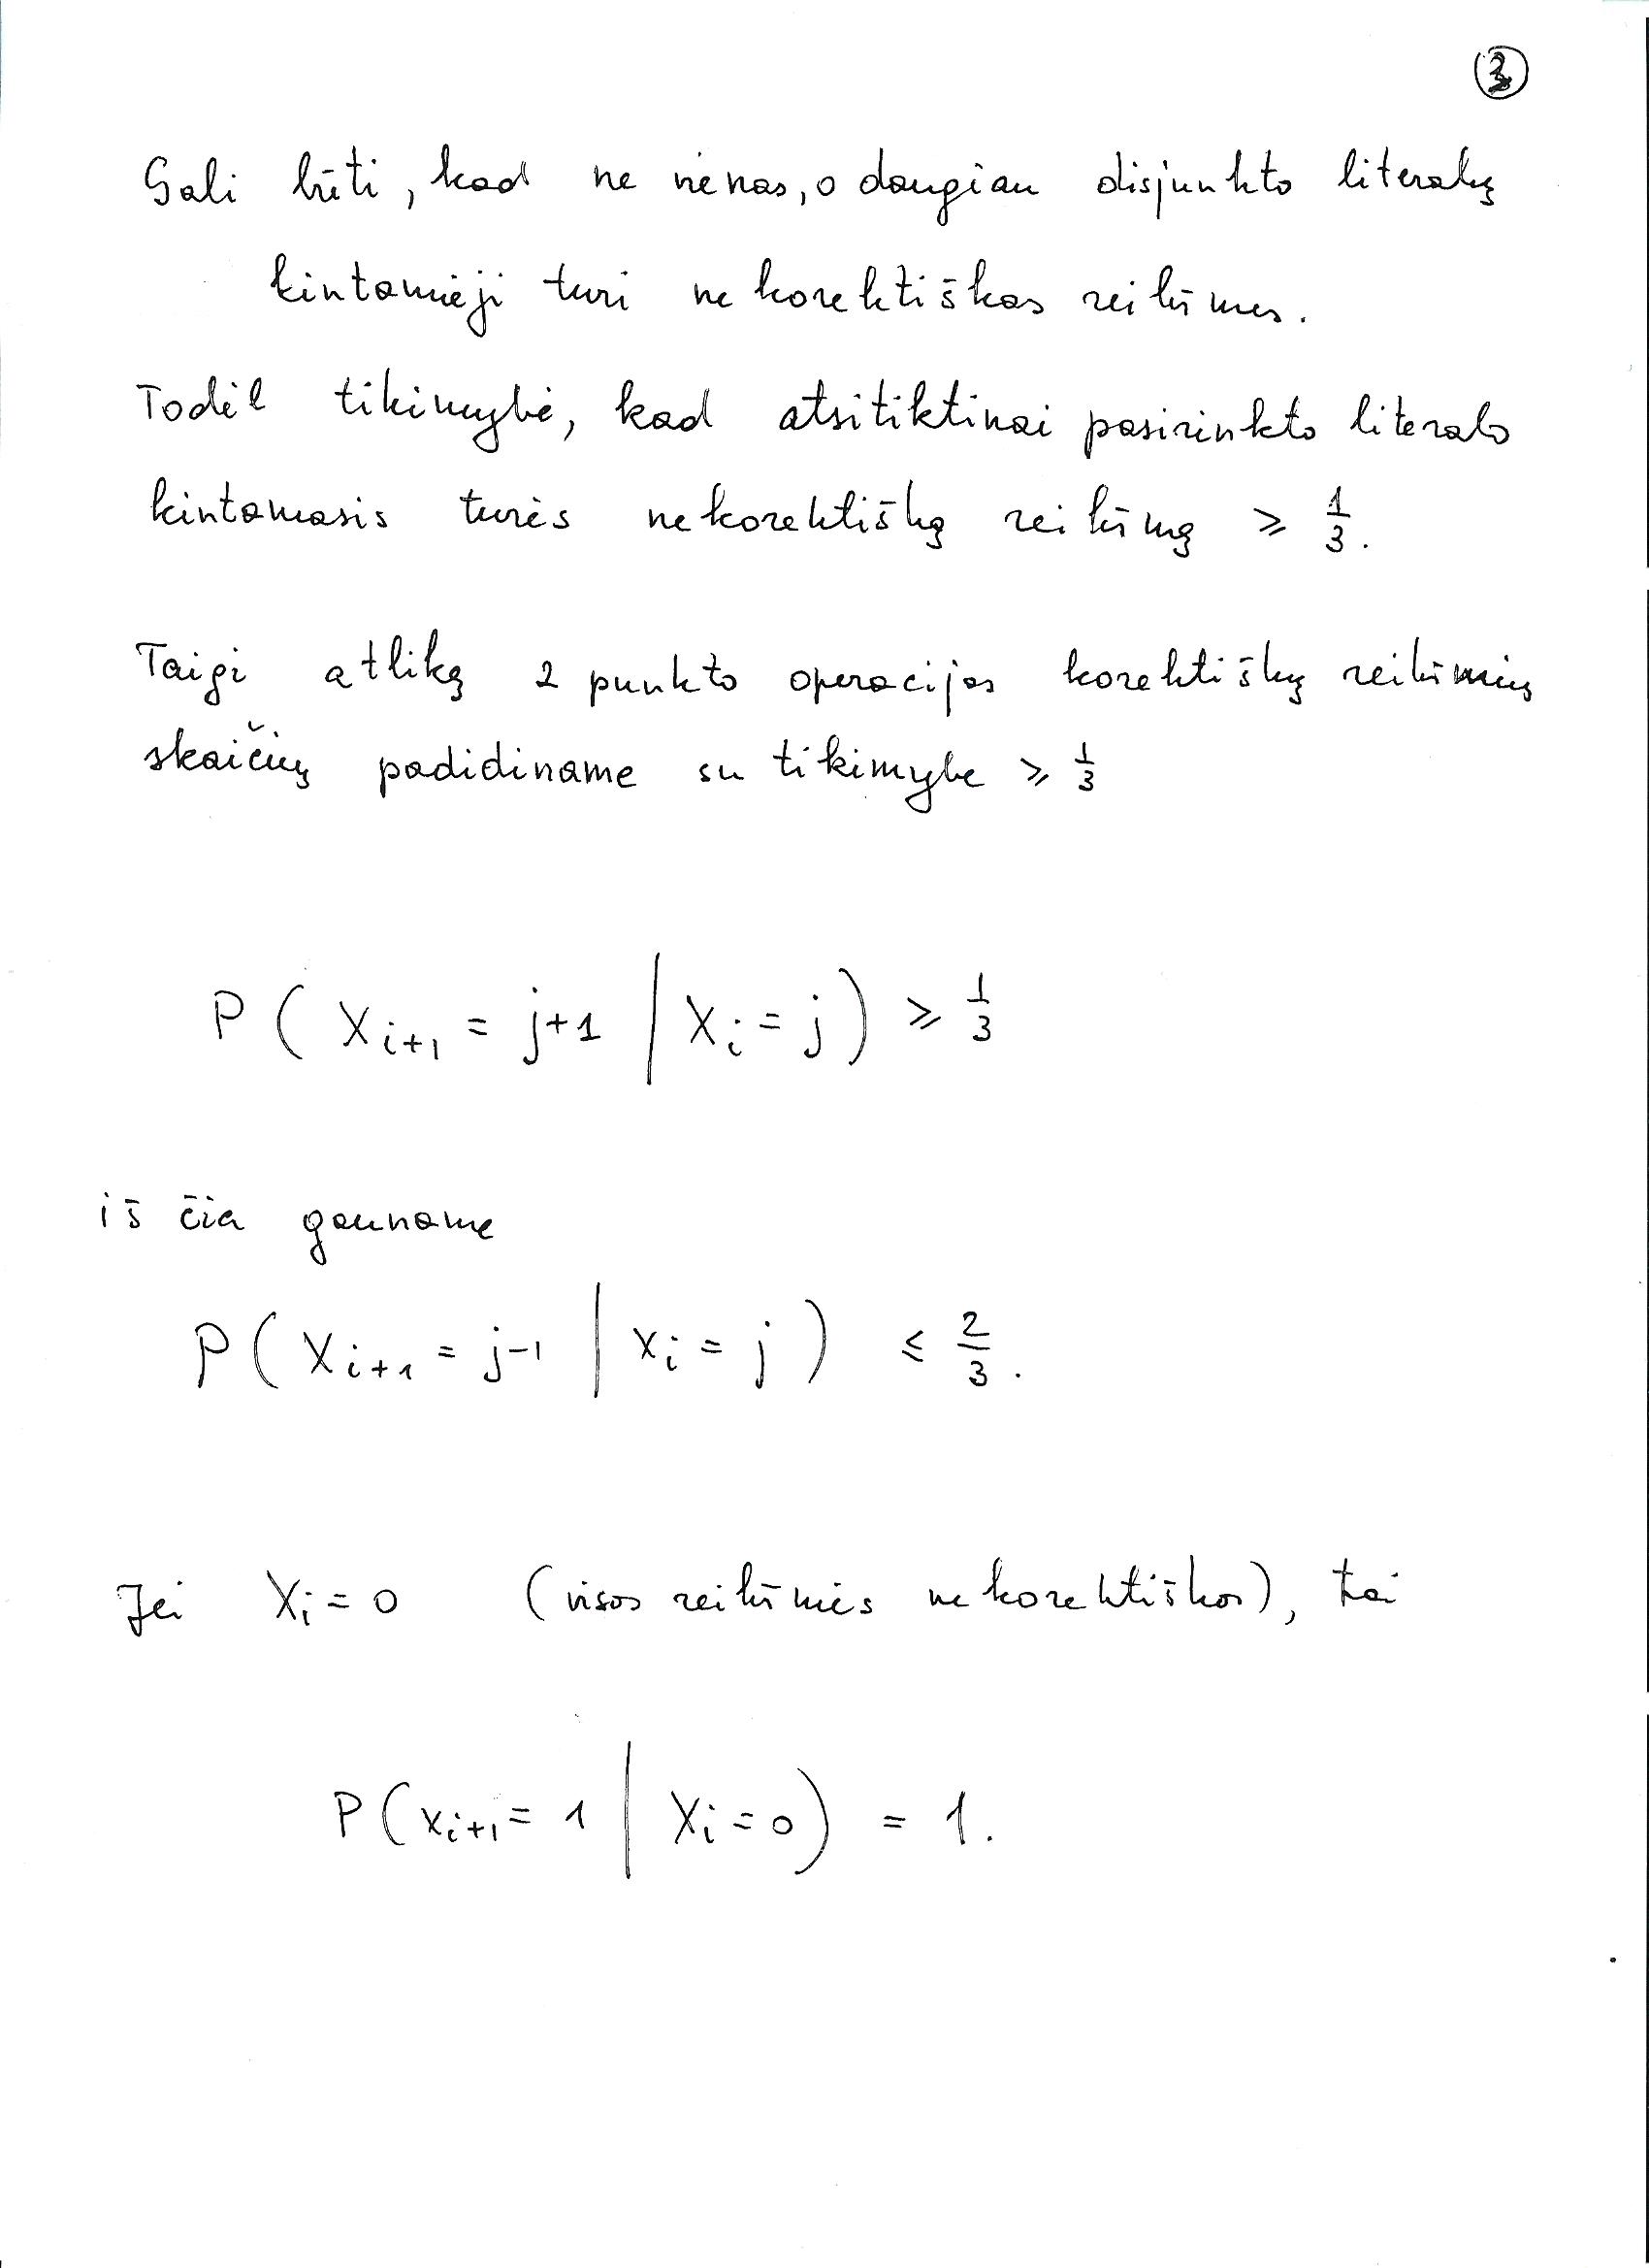 3
Gali būti, kad ne vienas, o daugiau disjunkto literalų
kintamieji turi nekorektiškas reikšmes.
Todėl tikimybė, kad atsitiktinai pasirinkto literalo
kintamasis turės nekorektišką reikšmę ≥ 1/3.
Taigi atlikę 2 punkto operacijas korektiškų reikšmių
skaičių padidiname su tikimybe ≥ 1/3
P(X_{i+1} = j+1 | X_i = j) ≥ 1/3
iš čia gauname
P(X_{i+1} = j-1 | X_i = j) ≤ 2/3.
Jei X_i = 0 (visos reikšmės nekorektiškos), tai
P(X_{i+1} = 1 | X_i = 0) = 1.